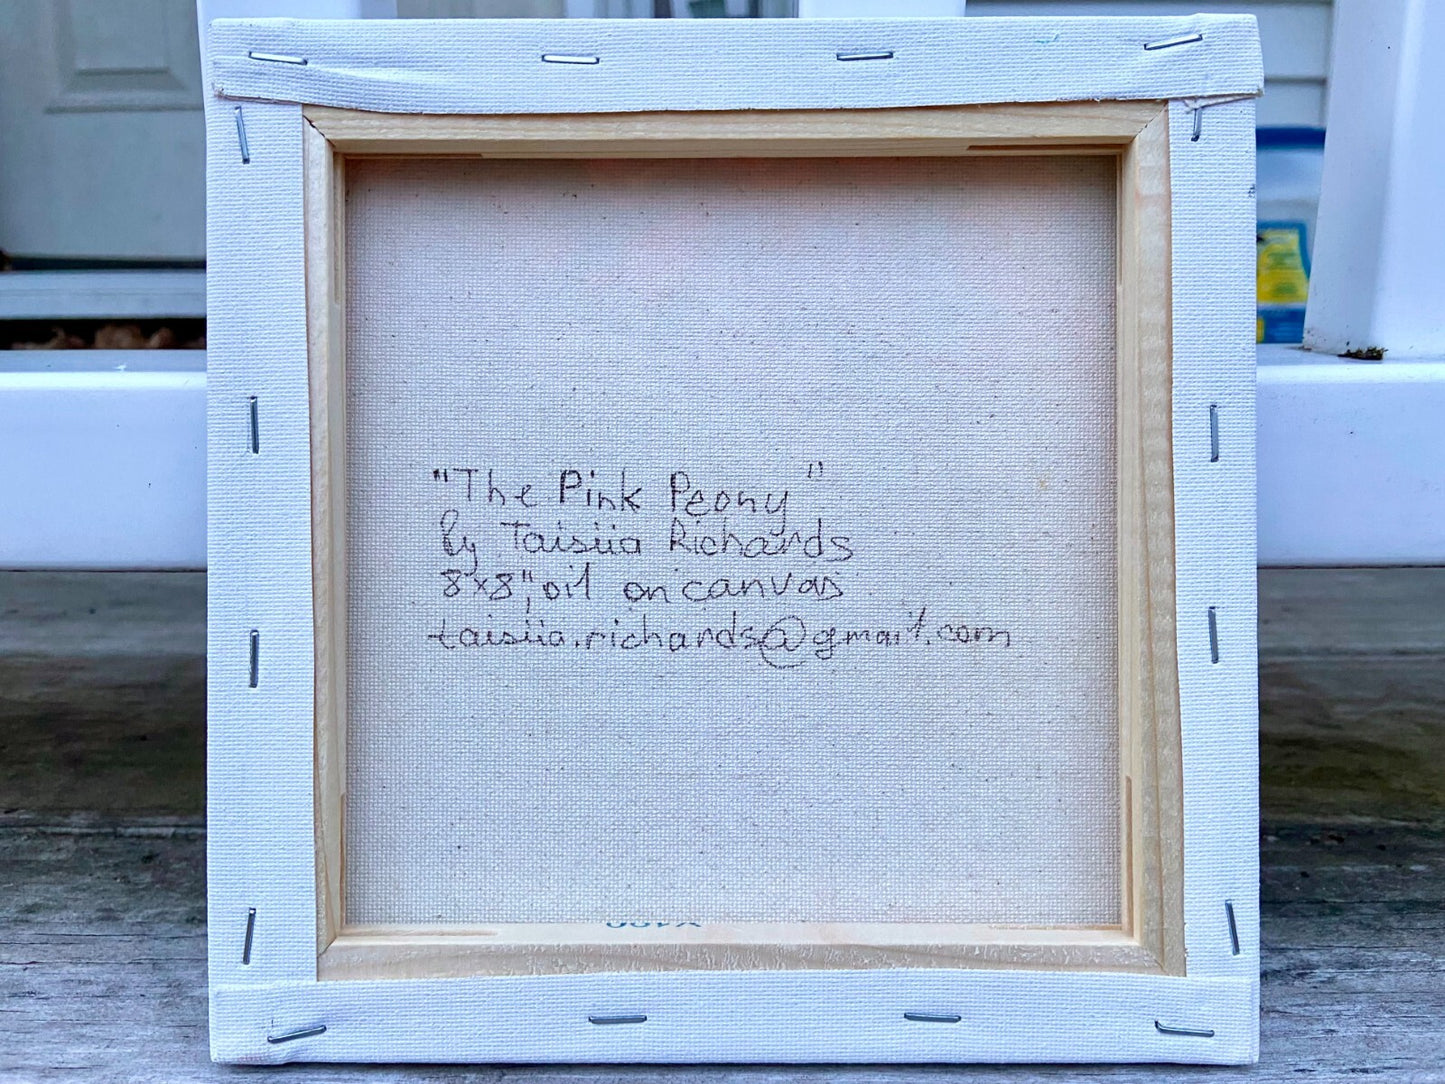 "The Pink Peony"
by Taisiia Richards
8x8", oil on canvas
taisiia.richards@gmail.com